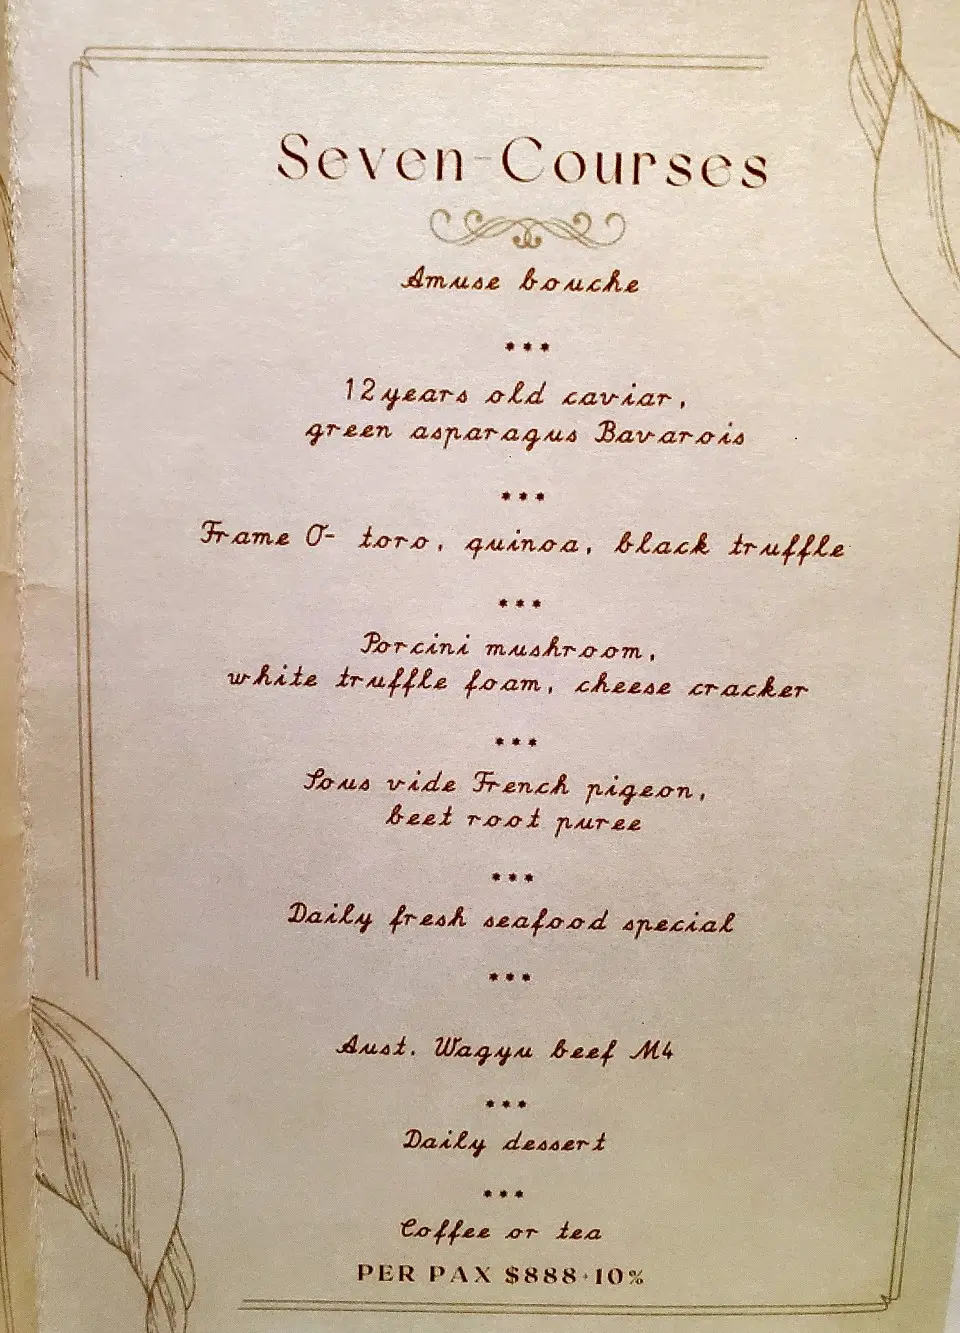 Seven-Courses
Amuse bouche
***
12years old caviar,
green asparagus Bavarois
***
Frame O- toro, quinoa, black truffle
***
Porcini mushroom,
white truffle foam, cheese cracker
***
Sous vide French pigeon,
beet root puree
***
Daily fresh seafood special
***
Aust. Wagyu beef M4
***
Daily dessert
***
Coffee or tea
PER PAX $888+10%